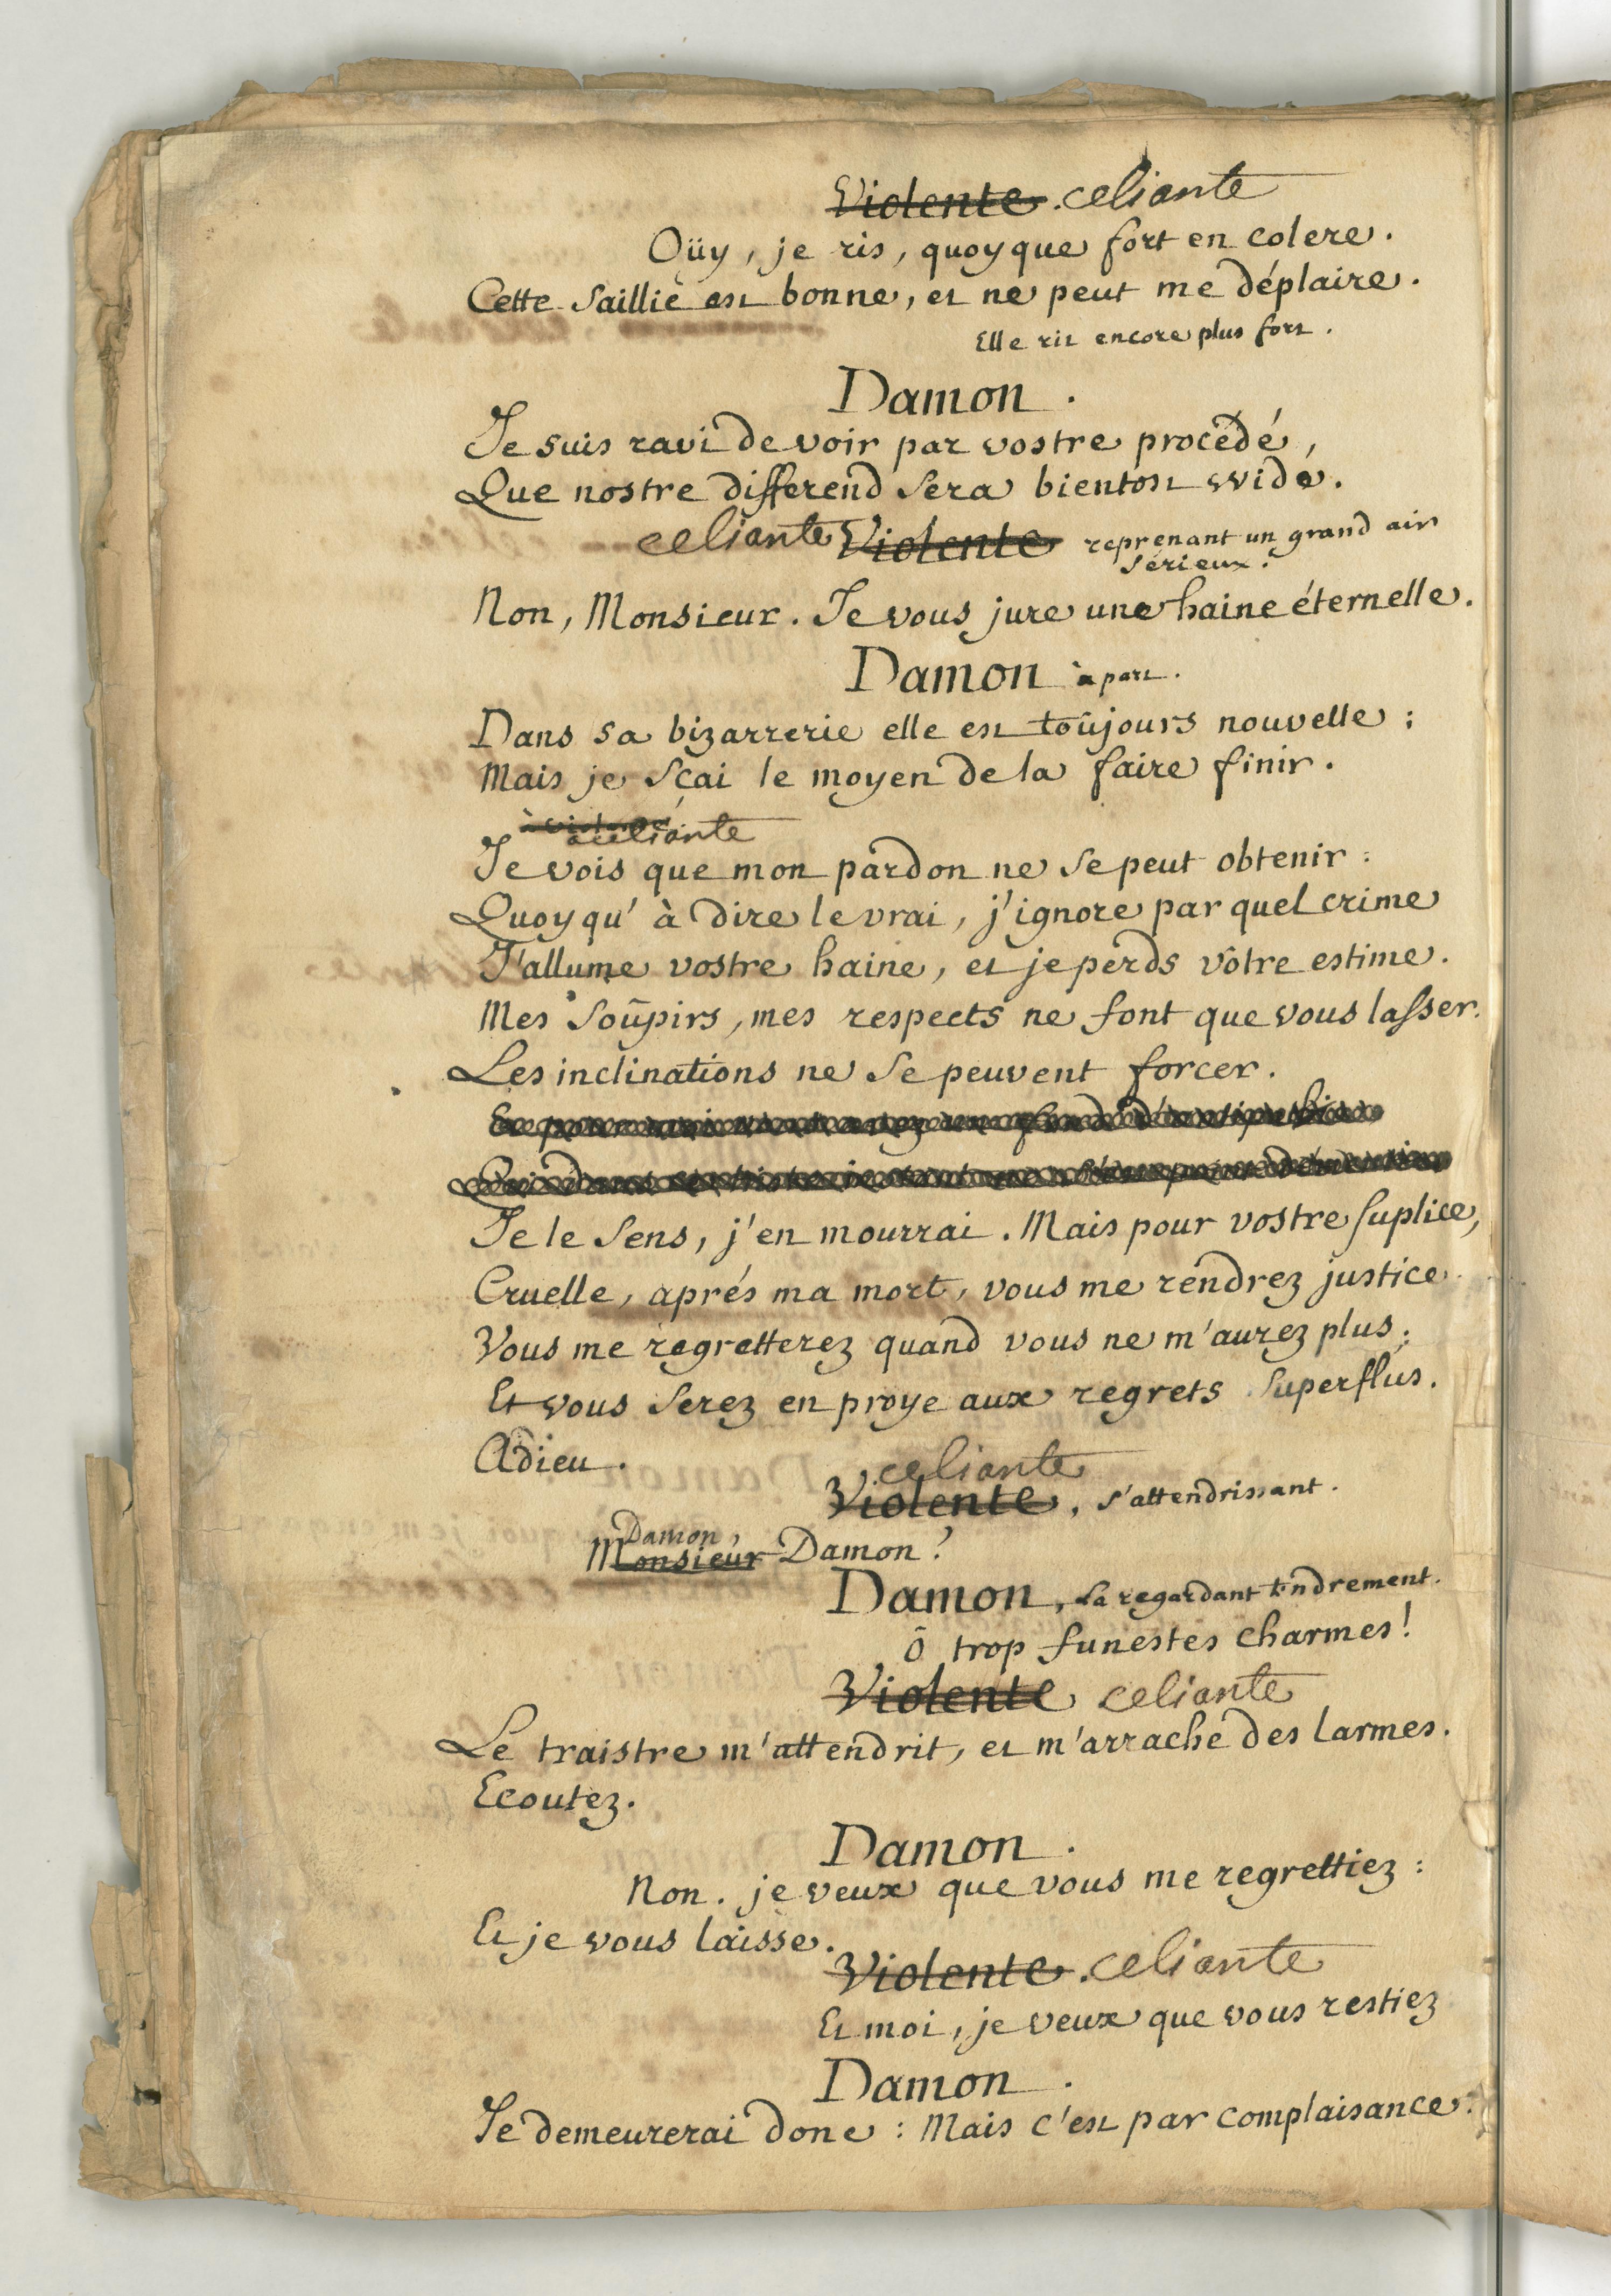 Violente. celiante
Oüy, je ris, quoyque fort en colere.
Cette saillie est bonne, et ne peut me déplaire.
Elle rit encore plus fort.
Damon.
Je suis ravi de voir par vostre procédé,
Que nostre differend sera bientost vuidé.
celiante Violente reprenant un grand air
sérieux.
Non, Monsieur. Je vous jure une haine éternelle.
Damon à part.
Dans sa bizarrerie elle est toûjours nouvelle ;
Mais je sçai le moyen de la faire finir.
à Violente
a celiante
Je vois que mon pardon ne se peut obtenir :
Quoyqu'à dire le vrai, j'ignore par quel crime
J'allume vostre haine, et je perds vôtre estime.
Mes soûpirs, mes respects ne font que vous lasser.
Les inclinations ne se peuvent forcer.
Et pour moi vous avez un fond d'antipathie
Qui dans
Je le sens, j'en mourrai. Mais pour vostre suplice,
Cruelle, aprés ma mort, vous me rendrez justice.
Vous me regretterez quand vous ne m'aurez plus ;
Et vous serez en proye aux regrets superflus.
Adieu.
celiante
Violente, s'attendrissant.
Damon,
Monsieur Damon ?
Damon, la regardant tendrement.
ô trop funestes charmes !
Violente celiante
Le traistre m'attendrit, et m'arrache des larmes.
Ecoutez.
Damon.
Non. je veux que vous me regrettiez :
Et je vous laisse.
Violente. celiante
Et moi, je veux que vous restiez
Damon.
Je demeurerai donc : Mais c'est par complaisance.